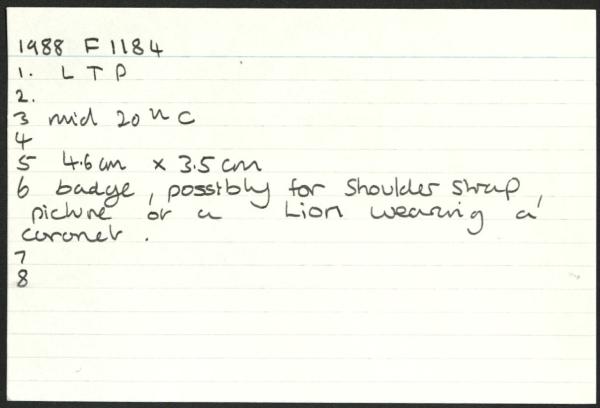 1988 F 1184
1. L T P
2.
3 mid 20th C
4
5 4.6 cm x 3.5 cm
6 badge, possibly for shoulder strap,
picture of a Lion wearing a
coronet.
7
8